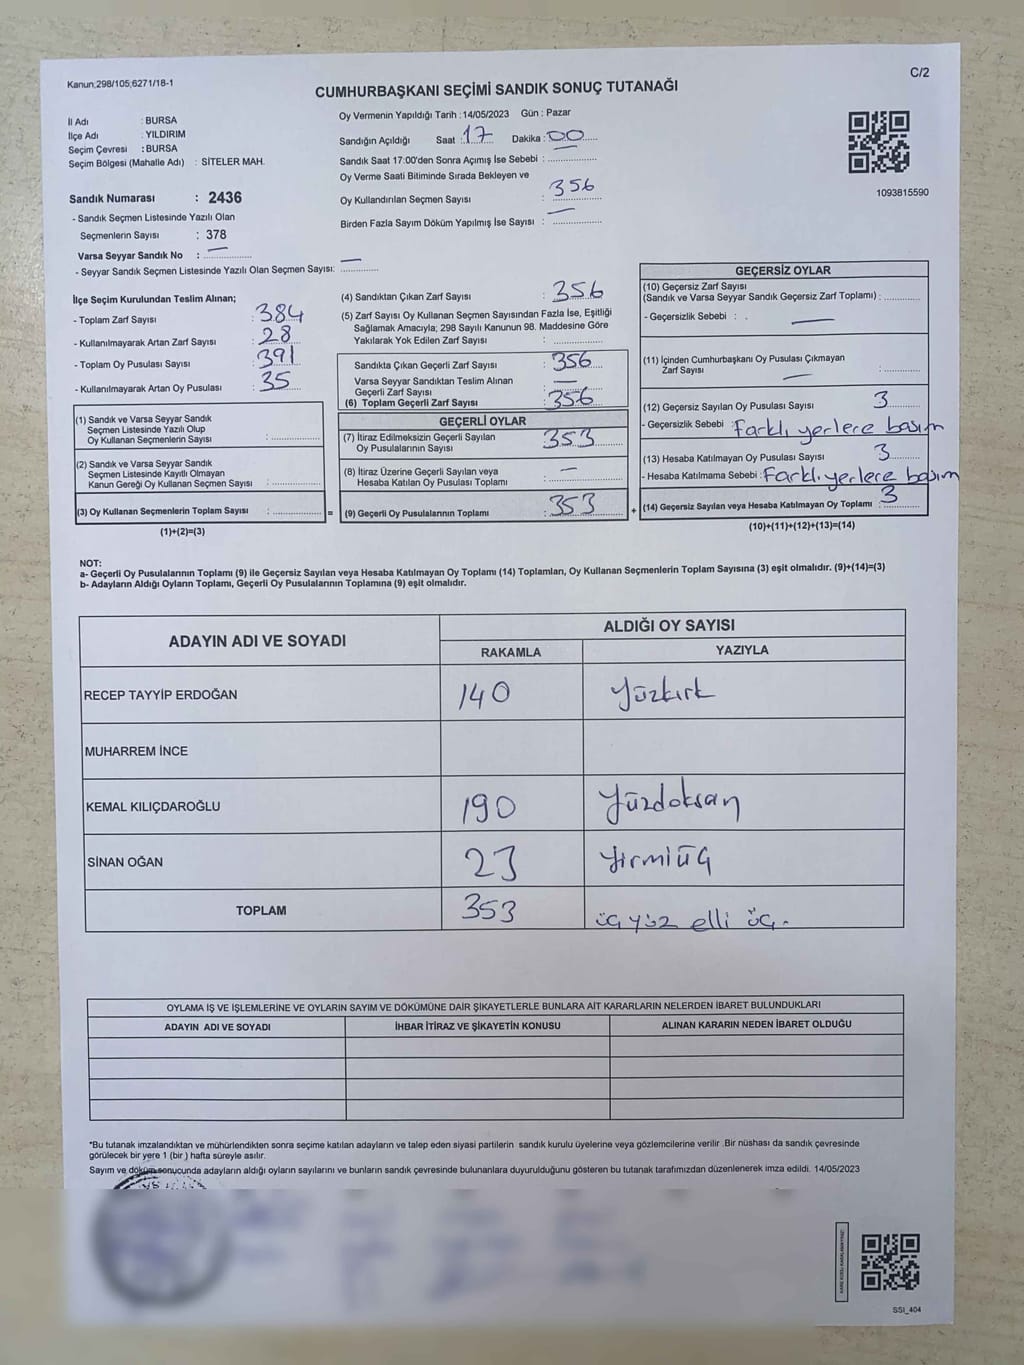 Kanun:298/105;6271/18-1
C/2
CUMHURBAŞKANI SEÇİMİ SANDIK SONUÇ TUTANAĞI
İl Adı : BURSA
İlçe Adı : YILDIRIM
Seçim Çevresi : BURSA
Seçim Bölgesi (Mahalle Adı) : SİTELER MAH.
Oy Vermenin Yapıldığı Tarih : 14/05/2023 Gün : Pazar
Sandığın Açıldığı Saat : 17 Dakika : 00
Sandık Saat 17:00'den Sonra Açımış İse Sebebi :
Oy Verme Saati Bitiminde Sırada Bekleyen ve
Oy Kullandırılan Seçmen Sayısı : 356
Birden Fazla Sayım Döküm Yapılmış İse Sayısı : —
1093815590
Sandık Numarası : 2436
- Sandık Seçmen Listesinde Yazılı Olan
Seçmenlerin Sayısı : 378
Varsa Seyyar Sandık No : —
- Seyyar Sandık Seçmen Listesinde Yazılı Olan Seçmen Sayısı: —
İlçe Seçim Kurulundan Teslim Alınan;
- Toplam Zarf Sayısı : 384
- Kullanılmayarak Artan Zarf Sayısı : 28
- Toplam Oy Pusulası Sayısı : 391
- Kullanılmayarak Artan Oy Pusulası : 35
(1) Sandık ve Varsa Seyyar Sandık
Seçmen Listesinde Yazılı Olup
Oy Kullanan Seçmenlerin Sayısı :
(2) Sandık ve Varsa Seyyar Sandık
Seçmen Listesinde Kayıtlı Olmayan
Kanun Gereği Oy Kullanan Seçmen Sayısı :
(3) Oy Kullanan Seçmenlerin Toplam Sayısı :
(1)+(2)=(3)
=
(4) Sandıktan Çıkan Zarf Sayısı : 356
(5) Zarf Sayısı Oy Kullanan Seçmen Sayısından Fazla İse, Eşitliği
Sağlamak Amacıyla; 298 Sayılı Kanunun 98. Maddesine Göre
Yakılarak Yok Edilen Zarf Sayısı :
Sandıkta Çıkan Geçerli Zarf Sayısı : 356
Varsa Seyyar Sandıktan Teslim Alınan
Geçerli Zarf Sayısı : —
(6) Toplam Geçerli Zarf Sayısı : 356
GEÇERLİ OYLAR
(7) İtiraz Edilmeksizin Geçerli Sayılan
Oy Pusulalarının Sayısı : 353
(8) İtiraz Üzerine Geçerli Sayılan veya
Hesaba Katılan Oy Pusulası Toplamı : —
(9) Geçerli Oy Pusulalarının Toplamı : 353
+
GEÇERSİZ OYLAR
(10) Geçersiz Zarf Sayısı
(Sandık ve Varsa Seyyar Sandık Geçersiz Zarf Toplamı) :
- Geçersizlik Sebebi : —
(11) İçinden Cumhurbaşkanı Oy Pusulası Çıkmayan
Zarf Sayısı — :
(12) Geçersiz Sayılan Oy Pusulası Sayısı 3
- Geçersizlik Sebebi : Farklı yerlere basım
(13) Hesaba Katılmayan Oy Pusulası Sayısı 3
- Hesaba Katılmama Sebebi : Farklı yerlere basım
(14) Geçersiz Sayılan veya Hesaba Katılmayan Oy Toplamı : 3
(10)+(11)+(12)+(13)=(14)
NOT:
a- Geçerli Oy Pusulalarının Toplamı (9) ile Geçersiz Sayılan veya Hesaba Katılmayan Oy Toplamı (14) Toplamları, Oy Kullanan Seçmenlerin Toplam Sayısına (3) eşit olmalıdır. (9)+(14)=(3)
b- Adayların Aldığı Oyların Toplamı, Geçerli Oy Pusulalarının Toplamına (9) eşit olmalıdır.
ADAYIN ADI VE SOYADI
ALDIĞI OY SAYISI
RAKAMLA YAZIYLA
RECEP TAYYİP ERDOĞAN 140 Yüzkırk
MUHARREM İNCE
KEMAL KILIÇDAROĞLU 190 Yüzdoksan
SİNAN OĞAN 23 Yirmiüç
TOPLAM 353 üç yüz elli üç.
OYLAMA İŞ VE İŞLEMLERİNE VE OYLARIN SAYIM VE DÖKÜMÜNE DAİR ŞİKAYETLERLE BUNLARA AİT KARARLARIN NELERDEN İBARET BULUNDUKLARI
ADAYIN ADI VE SOYADI İHBAR İTİRAZ VE ŞİKAYETİN KONUSU ALINAN KARARIN NEDEN İBARET OLDUĞU
*Bu tutanak imzalandıktan ve mühürlendikten sonra seçime katılan adayların ve talep eden siyasi partilerin sandık kurulu üyelerine veya gözlemcilerine verilir .Bir nüshası da sandık çevresinde
görülecek bir yere 1 (bir ) hafta süreyle asılır.
Sayım ve döküm sonucunda adayların aldığı oyların sayılarını ve bunların sandık çevresinde bulunanlara duyurulduğunu gösteren bu tutanak tarafımızdan düzenlenerek imza edildi. 14/05/2023
SSI_404